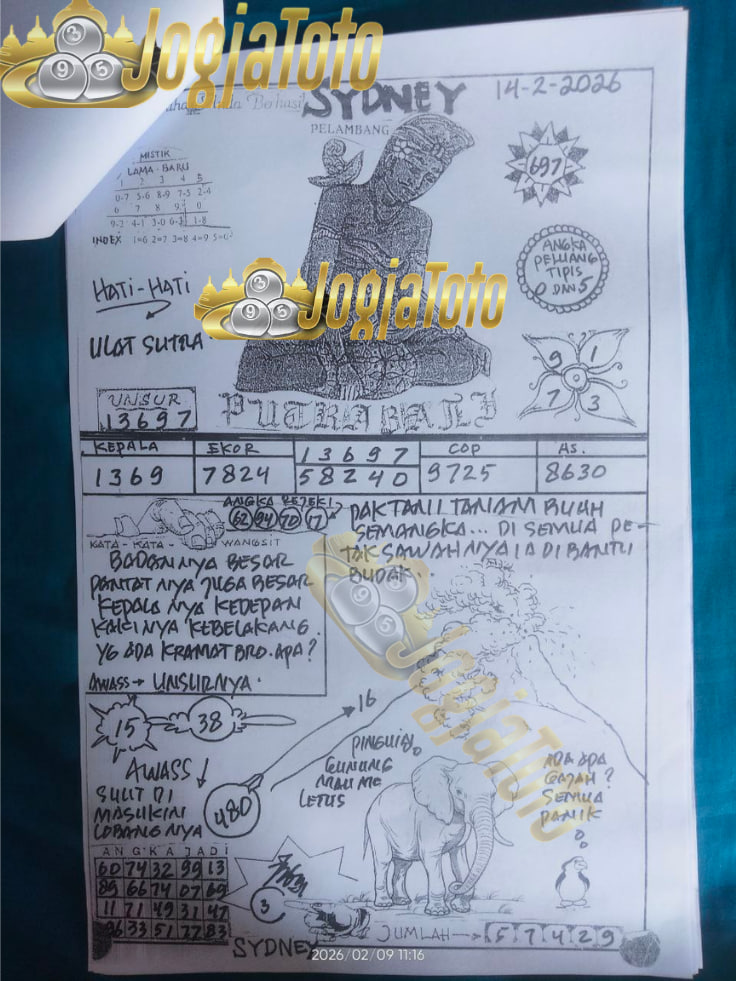 JogjaToto
3
9 5
SYDNEY
14-2-2026
Berhasil
PELAMBANG
MISTIK
LAMA-BARU
1 2 3 4 5
0-7 5-6 8-9 7-5 2-4
6 7 8 9 0
9-2 4-1 3-0 6-3 1-8
INDEX 1=6 2=7 3=8 4=9 5=0
697
ANGKA
PELUANG
TIPIS
0 DAN 5
HATI-HATI
JogjaToto
3
9 5
ULAT SUTRA
9 1
0
7 3
UNSUR
13697
PUTRA BALI
KEPALA EKOR 13697 COP AS.
1369 7824 58240 9725 8630
ANGKA REJEKI
62 94 70 17
KATA - KATA - WANGSIT
BADANNYA BESAR
PANTATNYA JUGA BESAR
KEPALANYA KEDEPAN
KAKINYA KEBELAKANG
YG ADA KRAMAT BRO. APA?
AWASS → UNSURNYA.
PAK TANI TANAM BUAH
SEMANGKA... DI SEMUA PE-
TAK SAWAHNYA IA DI BANTU
BUDAK..
3
9 5
JogjaToto
15
38
16
AWASS
SULIT DI
MASUKIN
LOBANGNYA
480
PINGUIN,
GUNUNG
MAU ME
LETUS
ADA APA
GAJAH?
SEMUA
PANIK
ANGKA JADI
60 74 32 99 13
89 66 14 07 69
11 71 49 31 47
96 33 51 77 83
3
JUMLAH → 5 7 4 2 9
SYDNEY
2026/02/09 11:16